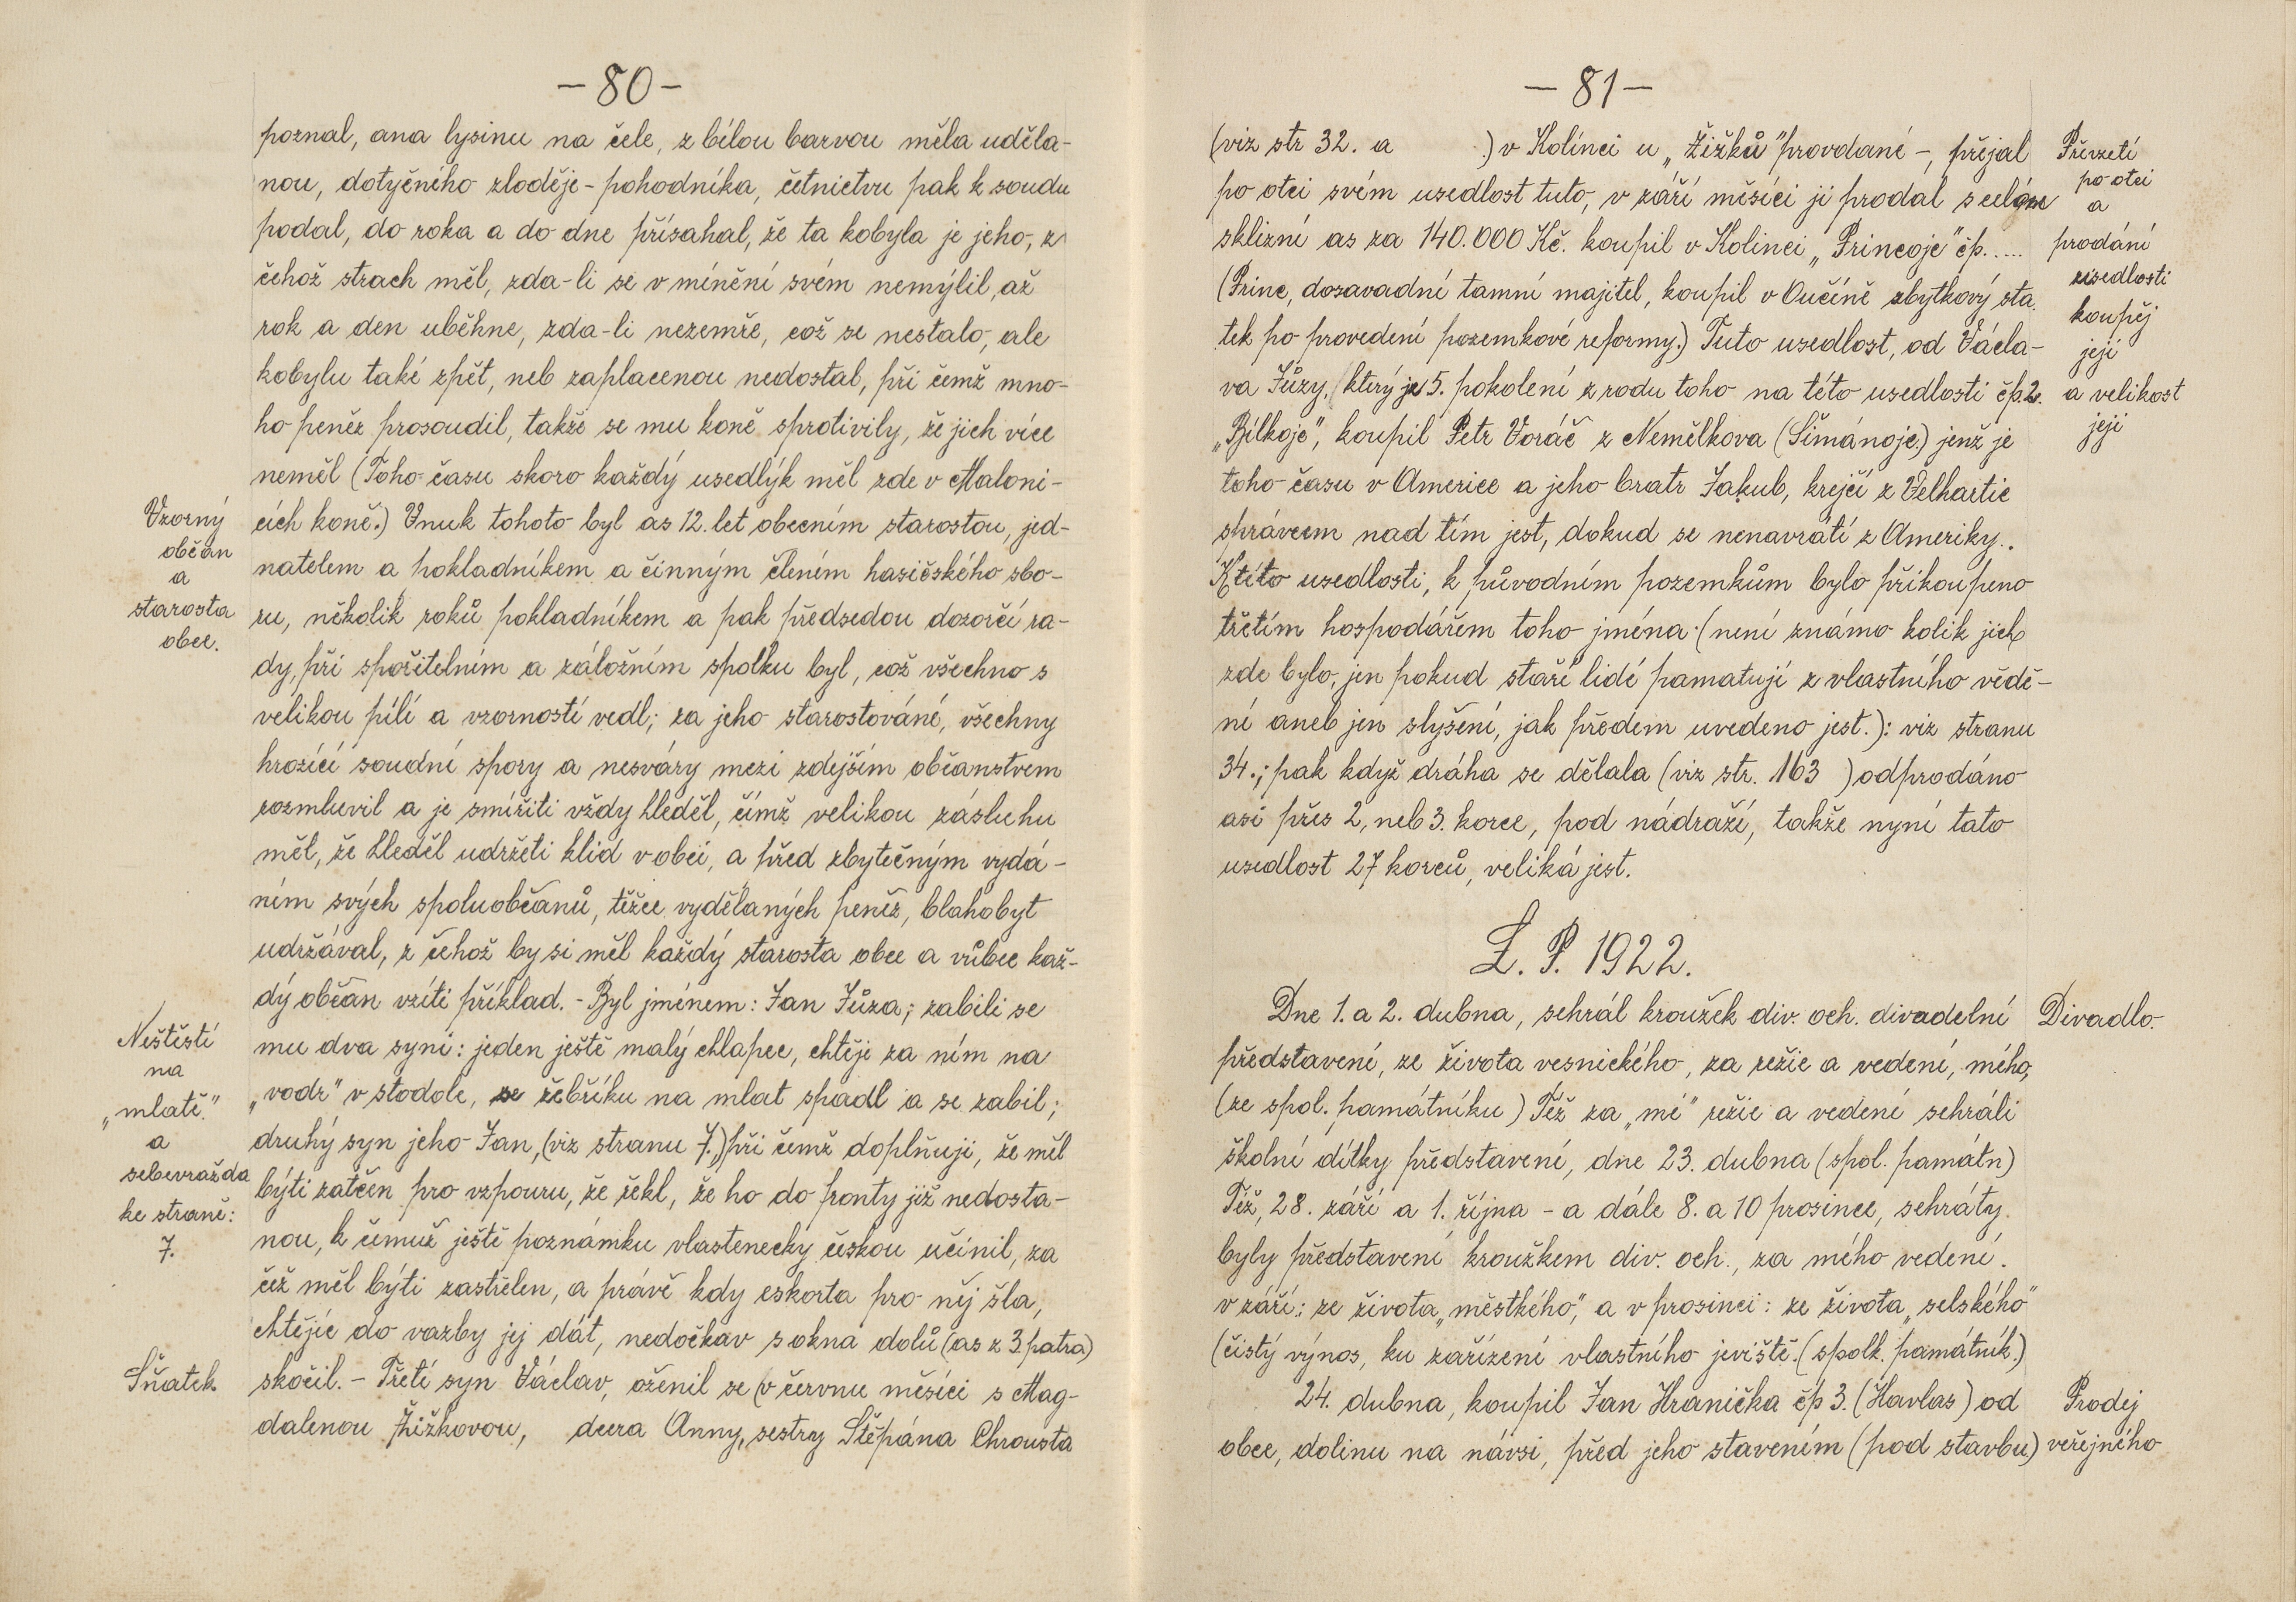 – 80 –
poznal, ana lysinu na čele, z bílou barvou měla uděla-
nou, dotyčného zloděje - pohodníka, četnictvu pak k soudu
podal, do roka a do dne přísahal, že ta kobyla je jeho, z
čehož strach měl, zda-li se v mínění svém nemýlil, až
rok a den uběhne, zda-li nezemře, což se nestalo, ale
kobylu také zpět, neb zaplacenou nedostal, při čemž mno-
ho peněz prosoudil, takže se mu koně sprotivily, že jich více
neměl (Toho času skoro každý usedlýk měl zde v Maloni-
cích koně.) Vnuk tohoto byl as 12. let obecním starostou, jed-
natelem a pokladníkem a činným člením hasičského sbo-
ru, několik roků pokladníkem a pak předsedou dozorčí ra-
dy, při spořitelním a záložním spolku byl, což všechno s
velikou pílí a vzorností vedl; za jeho starostováné, všechny
hrozící soudní spory a nesváry mezi zdejším občanstvem
rozmluvil a je smířiti vždy hleděl, čímž velikou zásluhu
měl, že hleděl udržeti klid v obci, a před zbytečným vydá-
ním svých spoluobčanů, těžce vydělaných peněz, blahobyt
udržával, z čehož by si měl každý starosta obce a vůbec kaž-
dý občan vzíti příklad. - Byl jménem: Jan Jůza; zabili se
mu dva syni: jeden ještě malý chlapec, chtěje za ním na
„vodr" v stodole, se žebříku na mlat spadl a se zabil;
druhý syn jeho Jan, (viz stranu 7.) při čemž doplňuji, že měl
býti zatčen pro vzpouru, že řekl, že ho do fronty již nedosta-
nou, k čemuž ještě poznámku vlastenecky českou učinil, za
čež měl býti zastřelen, a právě kdy eskorta pro něj šla,
chtějíc do vazby jej dát, nedočkav s okna dolů (as z 3. patra)
skočil. - Třetí syn Václav, oženil se (v červnu měsíci s Mag-
dalenou Žižkovou, dcera Anny, sestry Štěpána Chrousta
Vzorný
občan
a
starosta
obce.
Neštěstí
na
„mlatě."
a
sebevražda
ke straně:
7.
Sňatek
– 81 –
(viz str 32. a ) v Kolinci u „Žižků" provdané -, přejal
po otci svém usedlost tuto, v září měsíci ji prodal s celou
sklizní as za 140.000 Kč. koupil v Kolinci „Princoje" čp.....
(Princ, dosavadní tamní majitel, koupil v Oučíně zbytkový sta-
tek po provedení pozemkové reformy.) Tuto usedlost, od Václa-
va Jůzy, (který je 5. pokolení z rodu toho na této usedlosti čp. 2.
„Bílkoje", koupil Petr Voráč z Nemělkova (Šimánoje.) jenž je
toho času v Americe a jeho bratr Jakub, krejčí z Velhartic
správcem nad tím jest, dokud se nenavrátí z Ameriky..
K této usedlosti, k původním pozemkům bylo přikoupeno
třetím hospodářem toho jména (není známo kolik jich
zde bylo, jen pokud staří lidé pamatují z vlastního vědě-
ní aneb jen slyšení, jak předem uvedeno jest.): viz stranu
34.; pak když dráha se dělala (viz str. 163 ) odprodáno
asi přes 2, neb 3. korce, pod nádraží, takže nyní tato
usedlost 27 korců, veliká jest.
L. P. 1922.
Dne 1. a 2. dubna, sehrál kroužek div. och. divadelní
představení, ze života vesnického, za režie a vedení, mého,
(ze spol. památníku) Též za „mé" režie a vedení sehráli
školní dítky představení, dne 23. dubna (spol. památn)
Též, 28. září a 1. října - a dále 8. a 10 prosince, sehráty
byly představení kroužkem div. och., za mého vedení.
v září: ze života „městkého", a v prosinci: ze života „selského"
(čistý výnos, ku zařízení vlastního jeviště. (spolk. památník.)
24. dubna, koupil Jan Hranička čp 3. (Havlas) od
obce, dolinu na návsi, před jeho stavením (pod stavbu)
Převzetí
po otci
a
prodání
usedlosti
koupěj
její
a velikost
její
Divadlo.
Prodej
veřejného